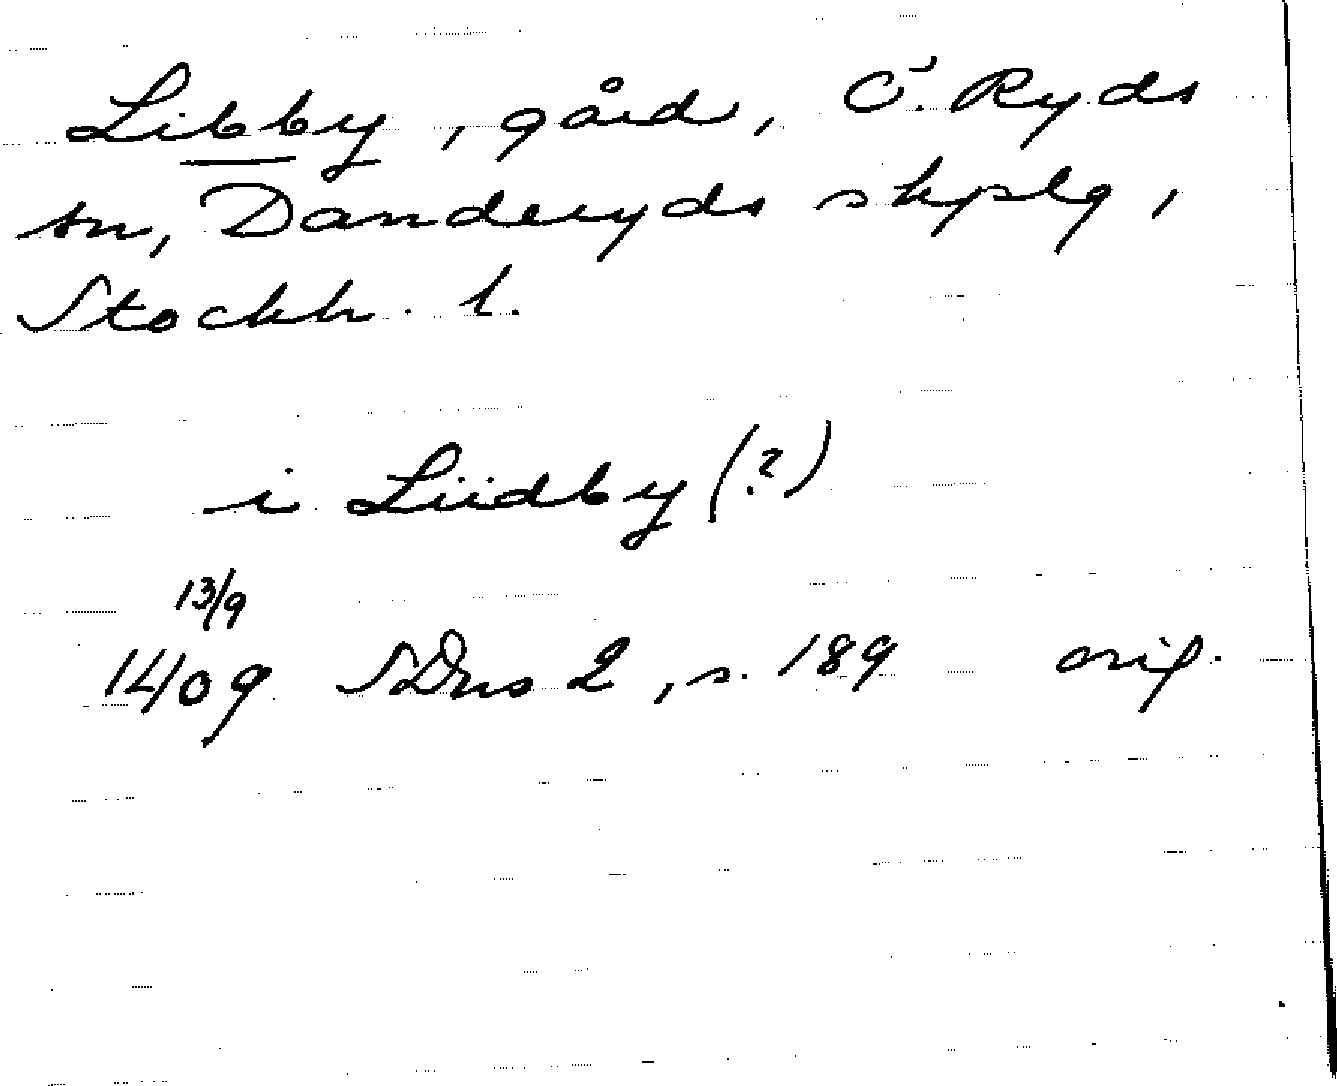 Libby, gård, Ö. Ryds
sn, Danderyds skplg,
Stockh. l.
i Liidby (?)
13/9
1409 SDns 2, s. 189 orig.